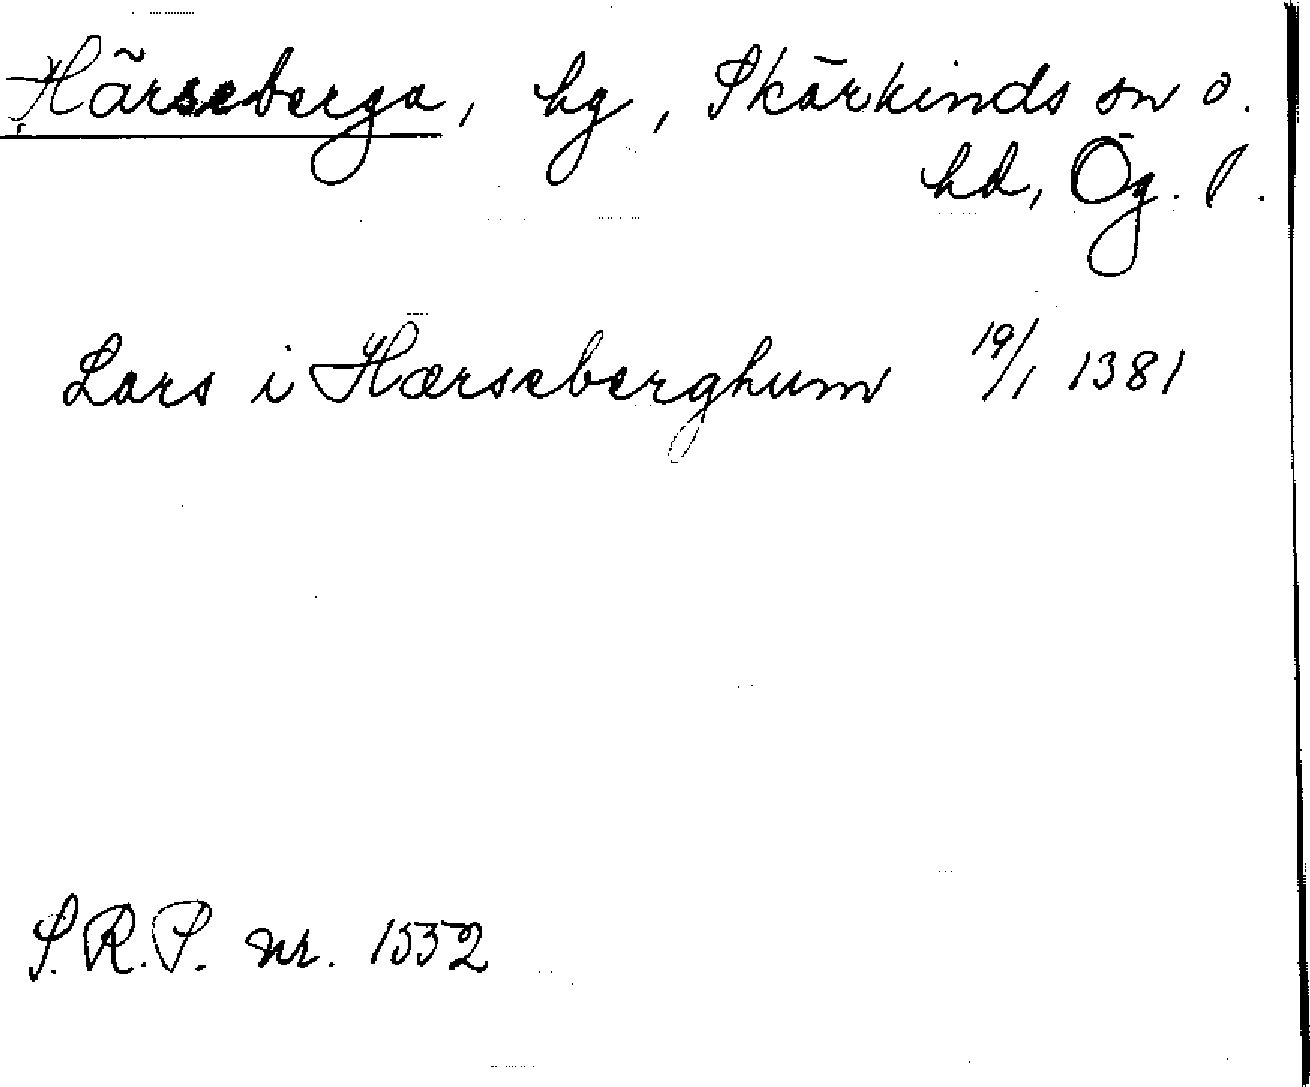 Härseberga, hg, Skärkinds sn o.
hd, Ög. l.
Lars i Hærseberghum 19/1 1381
S.R.P. nr. 1552